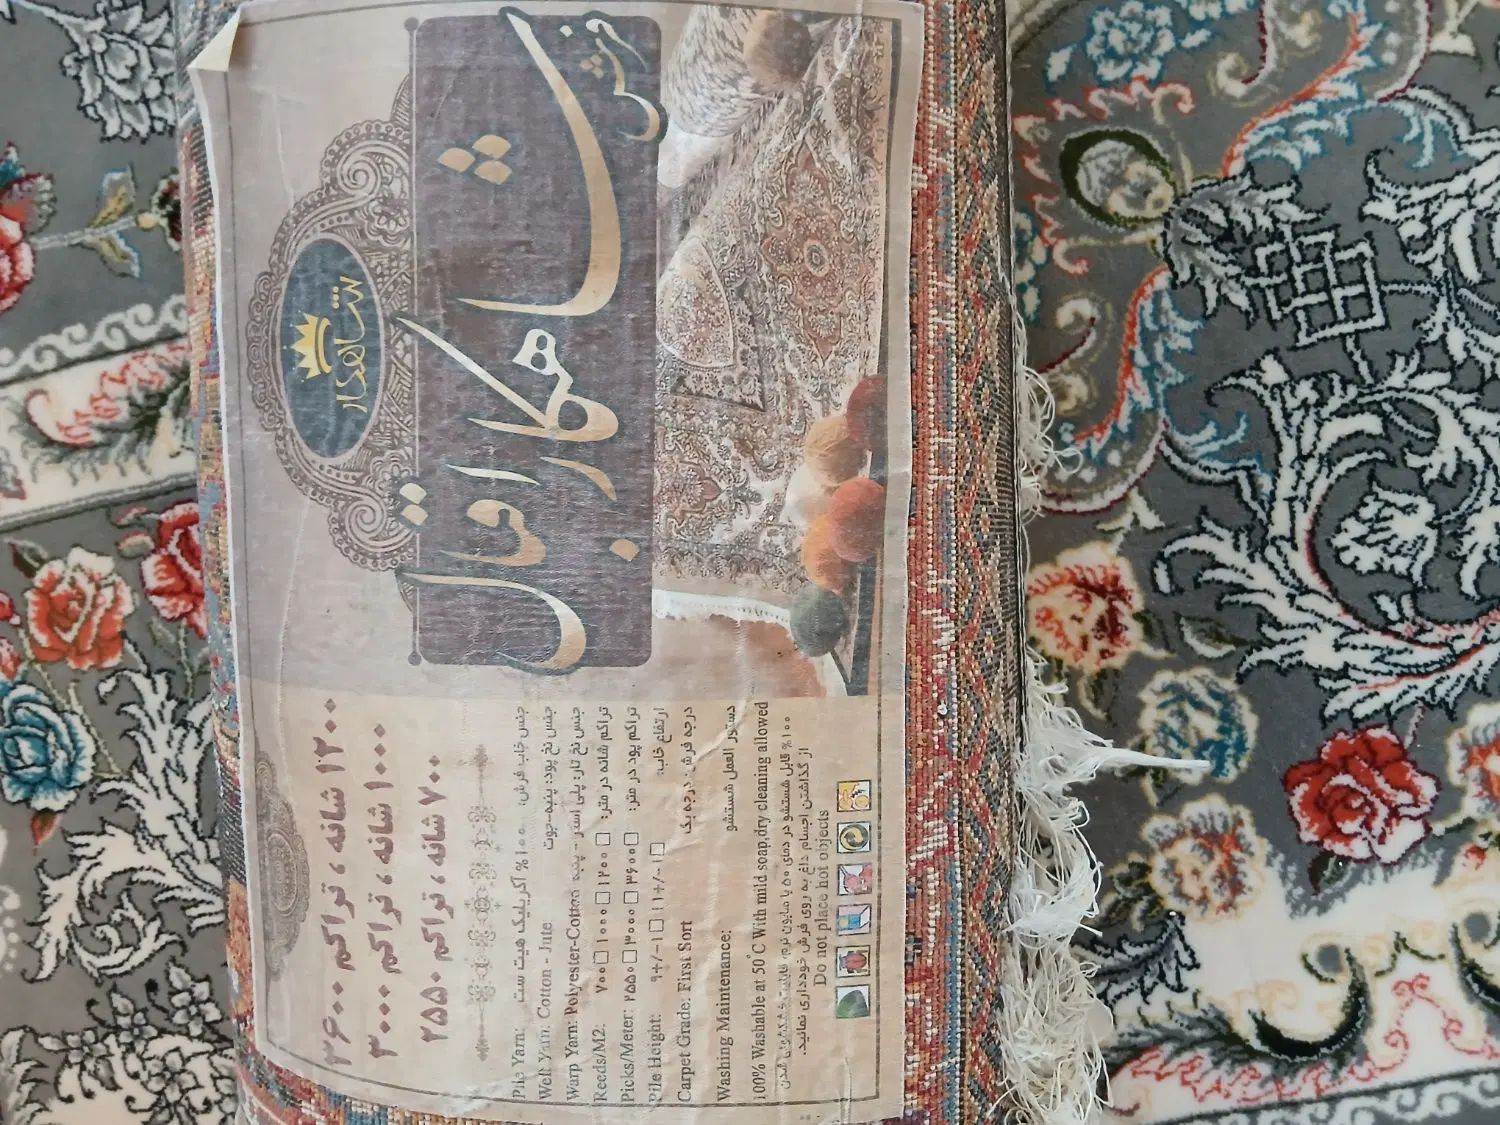 شاهکار
فرش
شاهکار اقبال
۱۲۰۰ شانه ، تراکم ۳۶۰۰
۱۰۰۰ شانه ، تراکم ۳۰۰۰
۷۰۰ شانه ، تراکم ۲۵۵۰
Pile Yarn: ۱۰۰% آکریلیک هیت ست جنس خاب فرش:
Weft Yarn: Cotton - Jute جنس نخ پود: پنبه-جوت
Warp Yarn: Polyester-Cotton جنس نخ تار: پلی استر - پنبه
Reeds/M2. ۷۰۰ □ ۱۰۰۰ □ ۱۲۰۰ □ تراکم شانه در متر:
Picks/Meter: ۲۵۵۰ □ ۳۰۰۰ □ ۳۶۰۰ □ تراکم پود در متر:
Pile Height: ۹+/-۱ □ ۱۱+/-۱ □ ارتفاع خاب:
Carpet Grade: First Sort درجه فرش: درجه یک
Washing Maintenance: دستور العمل شستشو
100% Washable at 50°C With mild soap,dry cleaning allowed
۱۰۰% قابل شستشو در دمای ۵۰ با صابون نرم، قابلیت خشکشویی شدن
از گذاشتن اجسام داغ به روی فرش خودداری نمائید.
Do not place hot objects